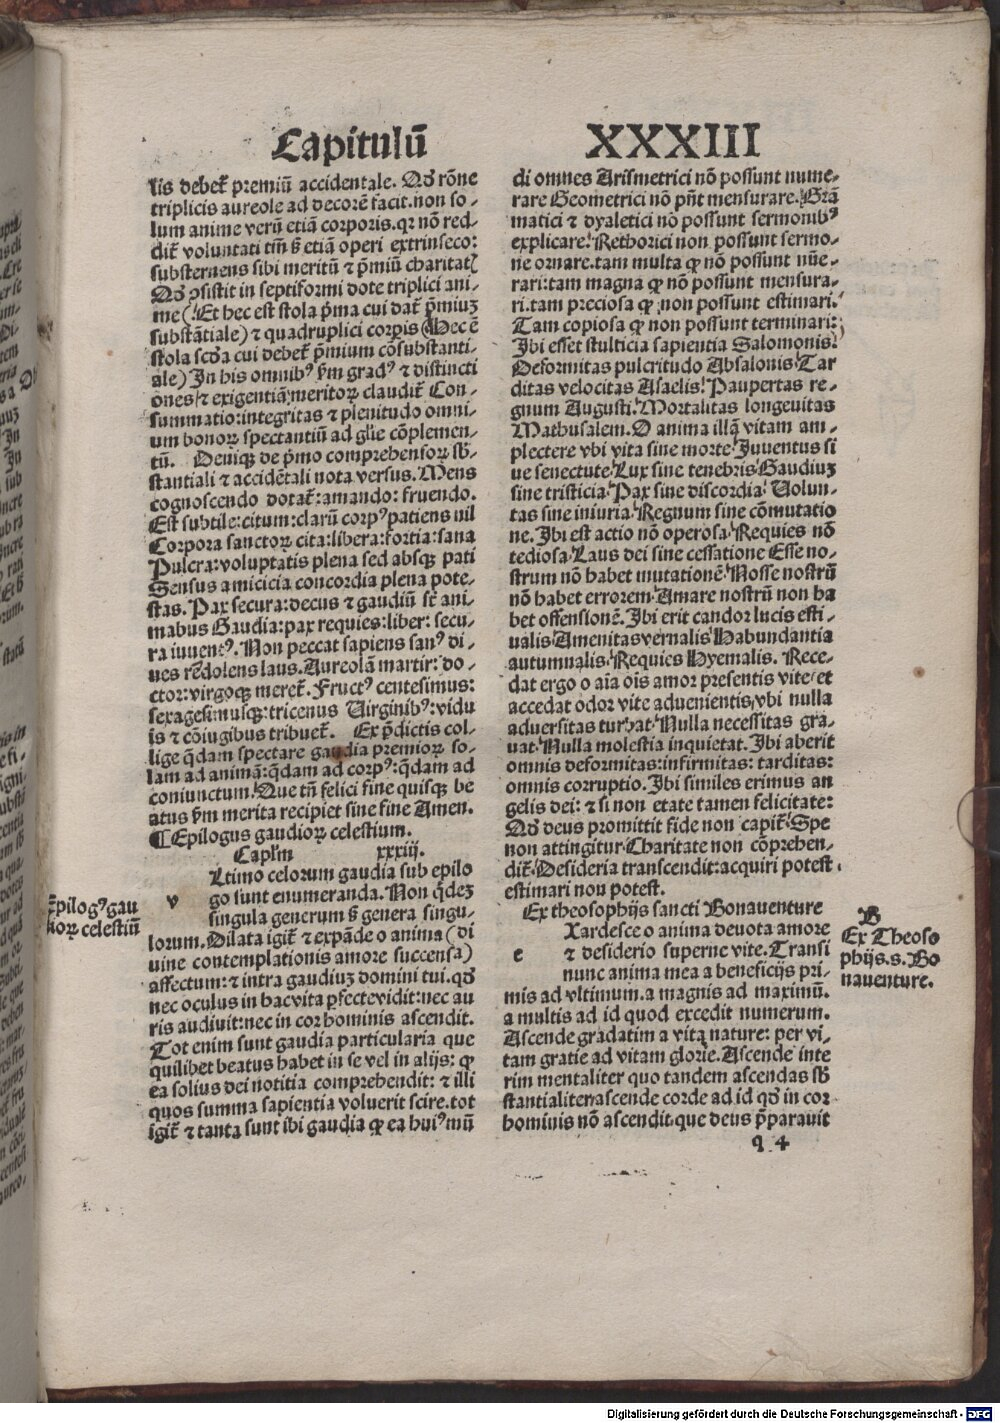 Capitulū XXXIII
lis debet᷑ premiū accidentale. Qđ rōne
triplicis aureole ad decorē facit. non so-
lum anime verū etiā corporis. qr nō red-
dit᷑ voluntati tm̄ s̄ etiā operi extrinseco:
substernens sibi meritū ⁊ p̄miū charitat
Qđ ꝯsistit in septiformi dote triplici ani-
me (Et hec est stola p̄ma cui dat᷑ p̄miuꝫ
substātiale) ⁊ quadruplici corpis (Hec ē
stola scđa cui debet᷑ p̄mium cōsubstanti-
ale) In his omnibꝰ ẜm gradꝰ ⁊ distincti
ones ⁊ exigentiā meritoꝝ claudit᷑ Con-
summatio: integritas ⁊ plenitudo omni-
um bonoꝝ spectantiū ad glīe cōplemen-
tū. Deniqꝫ de p̄mo comprehensoꝝ sb̄-
stantiali ⁊ accidētali nota versus. Mens
cognoscendo dotat᷑: amando: fruendo.
Est subtile: citum: clarū corpꝰ patiens nil
Corpora sanctoꝝ cita: libera: fortia: sana
Pulcra: voluptatis plena sed absqꝫ pati
Sensus amicicia concordia plena pote-
stas. Pax secura: decus ⁊ gaudiū st᷑ ani-
mabus Gaudia: pax requies: liber: secu-
ra iuuentꝰ. Non peccat sapiens sanꝰ di-
ues rēdolens laus. Aureolā martir: do-
ctor: virgoqꝫ meret᷑. Fructꝰ centesimus:
sexagesimusqꝫ: tricenus Virginibꝰ: vidu
is ⁊ cōiugibus tribuet᷑. Ex p̄dictis col-
lige qͣdam spectare gaudia premioꝝ so-
lam ad animā: qͣdam ad corpꝰ: qͣdam ad
coniunctum. Que tn̄ felici fine quisqꝫ be
atus ẜm merita recipiet sine fine Amen.
¶ Epilogus gaudioꝝ celestium.
Caplm̄ xxxiij.
v Ltimo celorum gaudia sub epilo
go sunt enumeranda. Non qͥdeꝫ
singula generum s̄ genera singu-
lorum. Dilata igit᷑ ⁊ expāde o anima (di
uine contemplationis amore succensa)
affectum: ⁊ intra gaudiuꝫ domini tui. qđ
nec oculus in hac vita ꝑfecte vidit: nec au
ris audiuit: nec in cor hominis ascendit.
Tot enim sunt gaudia particularia que
quilibet beatus habet in se vel in alijs: ꝙ
ea solius dei notitia comprehendit: ⁊ illi
quos summa sapientia voluerit scire. tot
igit᷑ ⁊ tanta sunt ibi gaudia ꝙ ea huiꝰ mū
Epilogꝰ gau
dioꝝ celestiū
di omnes Arismetrici nō possunt nume-
rare Geometrici nō pn̄t mensurare. Grā
matici ⁊ dyaletici nō possunt sermonibꝰ
explicare. Rethorici non possunt sermo-
ne ornare. tam multa ꝙ nō possunt nūe-
rari: tam magna ꝙ nō possunt mensura-
ri. tam preciosa ꝙ non possunt estimari.
Tam copiosa ꝙ non possunt terminari:
Ibi esset stulticia sapientia Salomonis.
Deformitas pulcritudo Absalonis. Tar
ditas velocitas Asaelis. Paupertas re-
gnum Augusti. Mortalitas longeuitas
Mathusalem. O anima illā vitam am-
plectere vbi vita sine morte. Iuuentus si
ue senectute. Lux sine tenebris. Gaudiuꝫ
sine tristicia. Pax sine discordia. Uolun-
tas sine iniuria. Regnum sine cōmutatio
ne. Ibi est actio nō operosa. Requies nō
tediosa. Laus dei sine cessatione Esse no-
strum nō habet mutationē. Nosse nostrū
nō habet errorem. Amare nostrū non ha
bet offensionē. Ibi erit candor lucis esti-
ualis. Amenitas vernalis. Habundantia
autumnalis. Requies Hyemalis. Rece-
dat ergo o aīa oīs amor presentis vite: et
accedat odor vite aduenientis, vbi nulla
aduersitas turbat. Nulla necessitas gra-
uat. Nulla molestia inquietat. Ibi aberit
omnis deformitas: infirmitas: tarditas:
omnis corruptio. Ibi similes erimus an
gelis dei: ⁊ si non etate tamen felicitate:
Qđ deus promittit fide non capit᷑. Spe
non attingitur. Charitate non cōprehen-
dit᷑. Desideria transcendit: acquiri potest.
estimari nou potest.
Ex theosophijs sancti Bonauenture
e Xardesce o anima deuota amore
⁊ desiderio superne vite. Transi
nunc anima mea a beneficijs pri-
mis ad vltimum. a magnis ad maximū.
a multis ad id quod excedit numerum.
Ascende gradatim a vita nature: per vi-
tam gratie ad vitam glorie. Ascende inte
rim mentaliter quo tandem ascendas sb̄
stantialiter ascende corde ad id qđ in cor
hominis nō ascendit. que deus p̄parauit
B
Ex Theoso
phijs. s. Bo
nauenture.
q 4
Digitalisierung gefördert durch die Deutsche Forschungsgemeinschaft - DFG